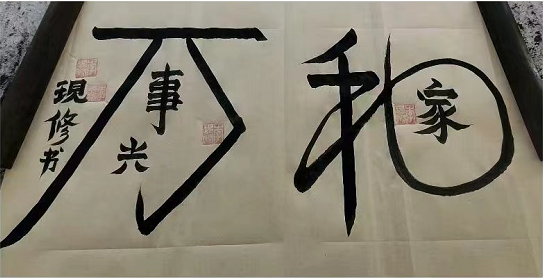 家和
万事兴
現修书